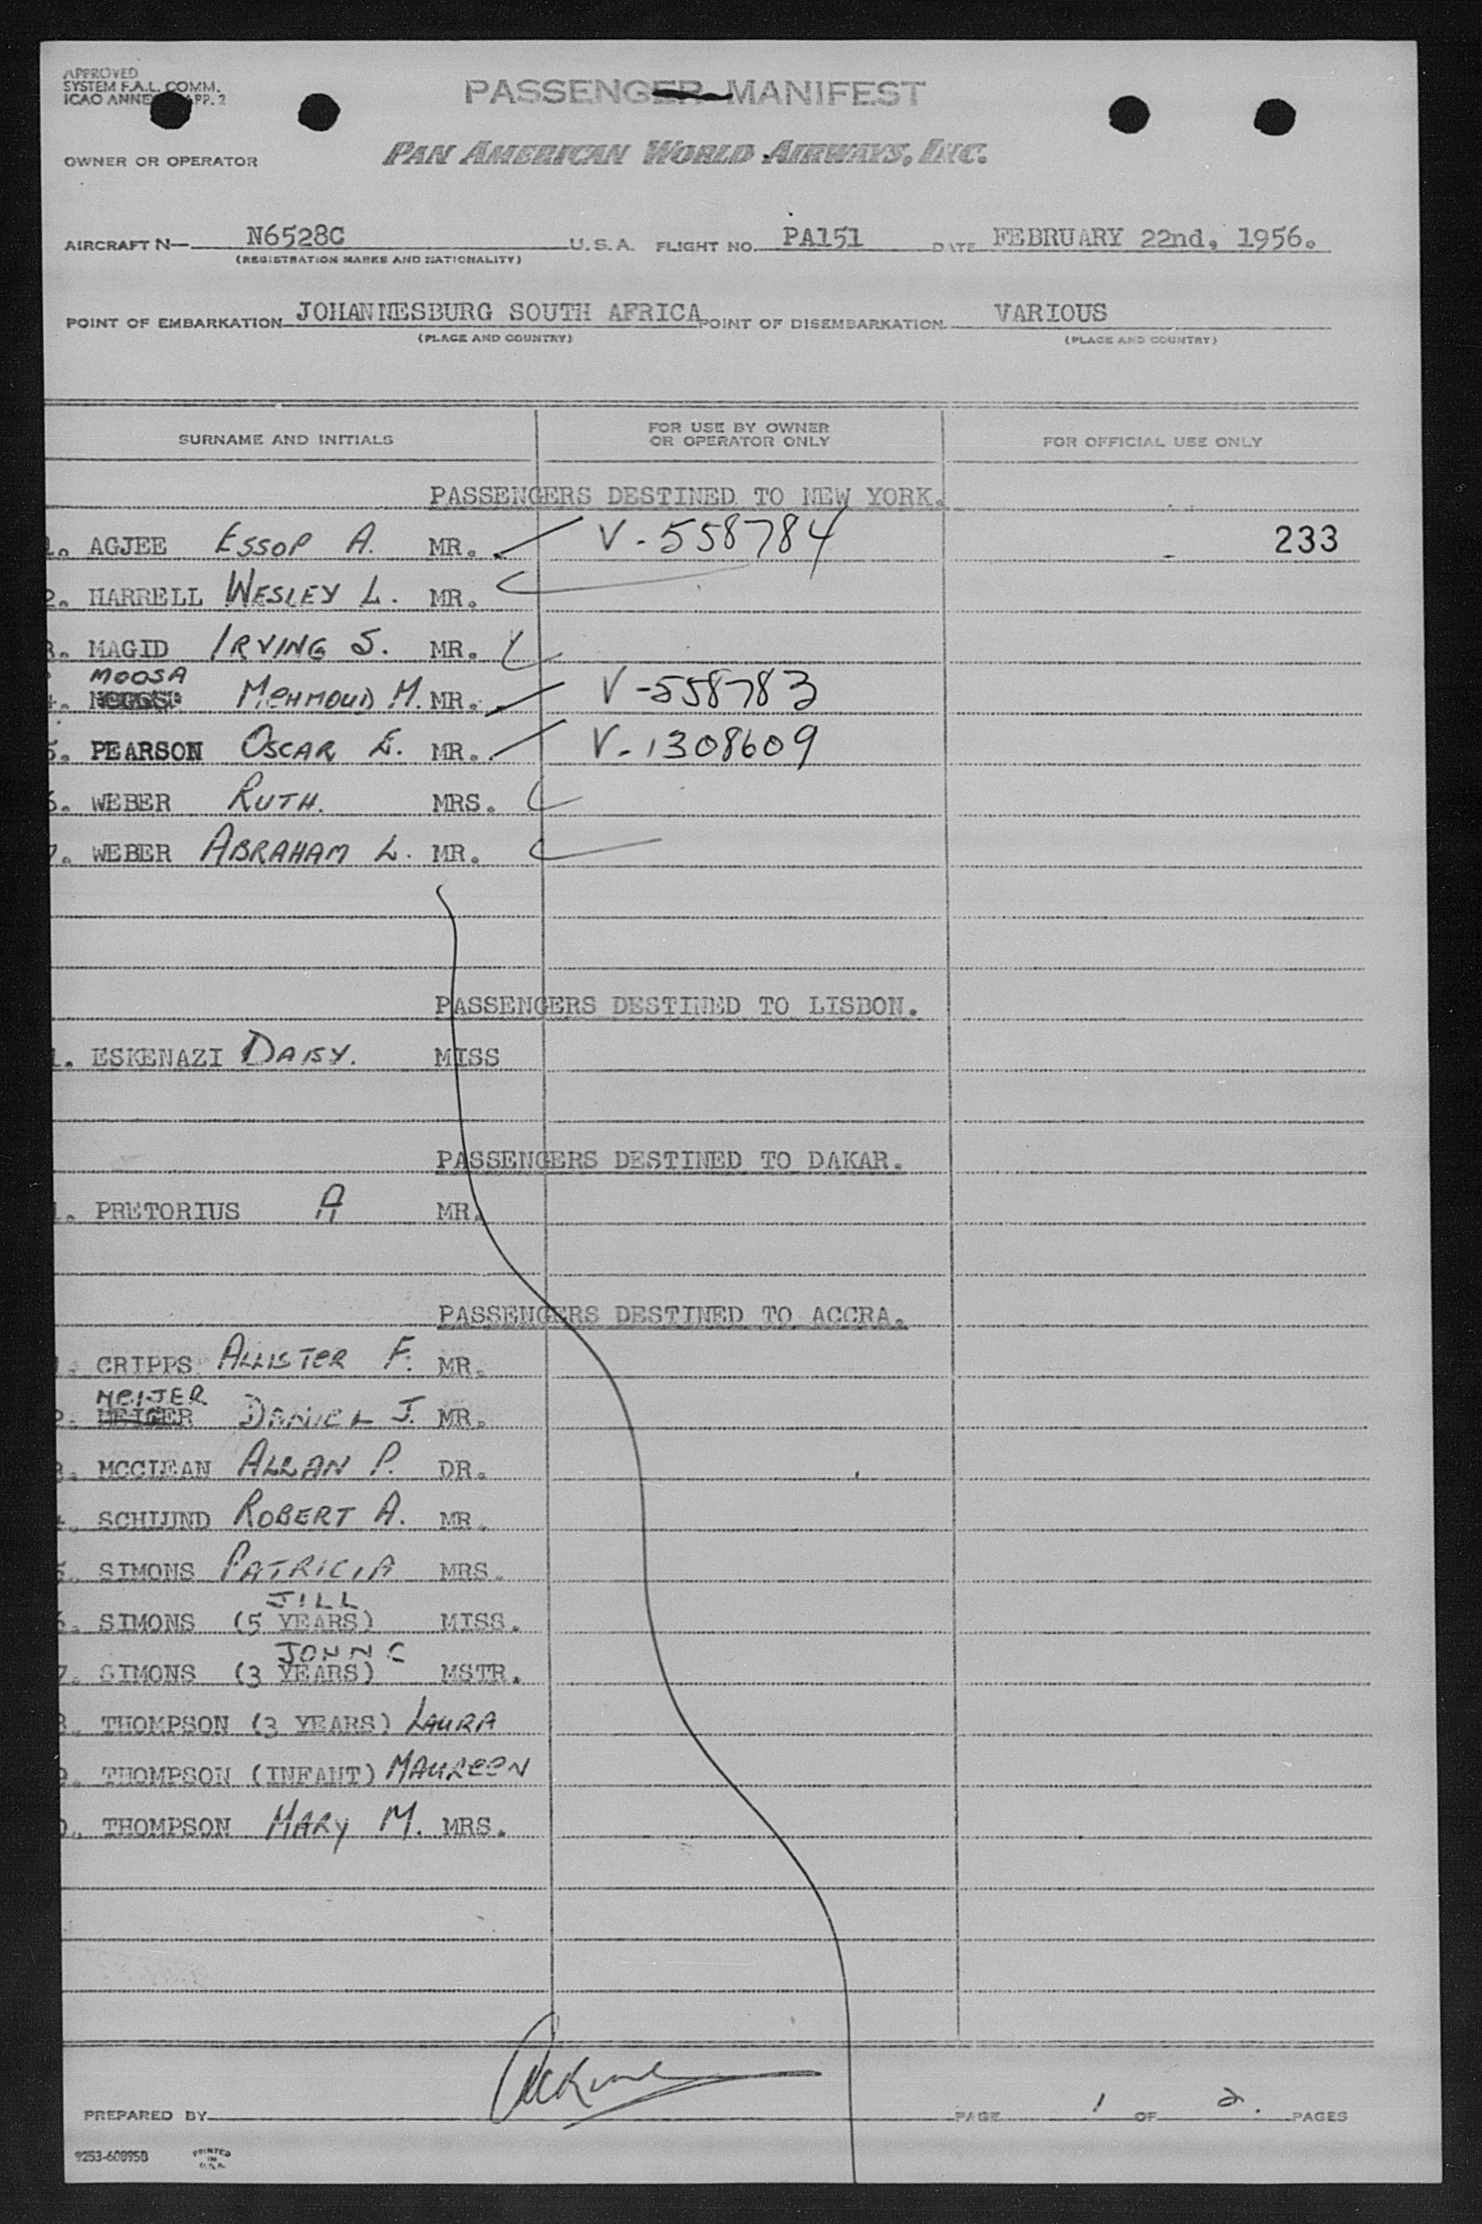 APPROVED
SYSTEM F.A.L. COMM.
ICAO ANNE PP. 2
PASSENGER MANIFEST
OWNER OR OPERATOR PAN AMERICAN WORLD AIRWAYS, INC.
AIRCRAFT N— N6528C U.S.A. FLIGHT NO. PA151 DATE FEBRUARY 22nd, 1956.
(REGISTRATION MARKS AND NATIONALITY)
POINT OF EMBARKATION JOHANNESBURG SOUTH AFRICA POINT OF DISEMBARKATION VARIOUS
(PLACE AND COUNTRY) (PLACE AND COUNTRY)
SURNAME AND INITIALS FOR USE BY OWNER OR OPERATOR ONLY FOR OFFICIAL USE ONLY
PASSENGERS DESTINED TO NEW YORK.
1. AGJEE ESSOP A. MR. V-558784 233
2. HARRELL WESLEY L. MR.
3. MAGID IRVING S. MR.
MOOSA
4. MEHMOUD M. MR. V-558783
5. PEARSON OSCAR E. MR. V-1308609
6. WEBER RUTH. MRS.
7. WEBER ABRAHAM L. MR.
PASSENGERS DESTINED TO LISBON.
1. ESKENAZI DAISY. MISS
PASSENGERS DESTINED TO DAKAR.
1. PRETORIUS A MR.
PASSENGERS DESTINED TO ACCRA.
1. CRIPPS ALLISTER F. MR.
MEIJER
2. DANIEL J. MR.
3. MCCLEAN ALLAN P. DR.
4. SCHIJIND ROBERT A. MR.
5. SIMONS PATRICIA MRS.
JILL
6. SIMONS (5 YEARS) MISS.
JOHN C
7. SIMONS (3 YEARS) MSTR.
8. THOMPSON (3 YEARS) LAURA
9. THOMPSON (INFANT) MAUREEN
10. THOMPSON MARY M. MRS.
PREPARED BY PAGE 1 OF 2. PAGES
9253-60895B PRINTED IN U.S.A.